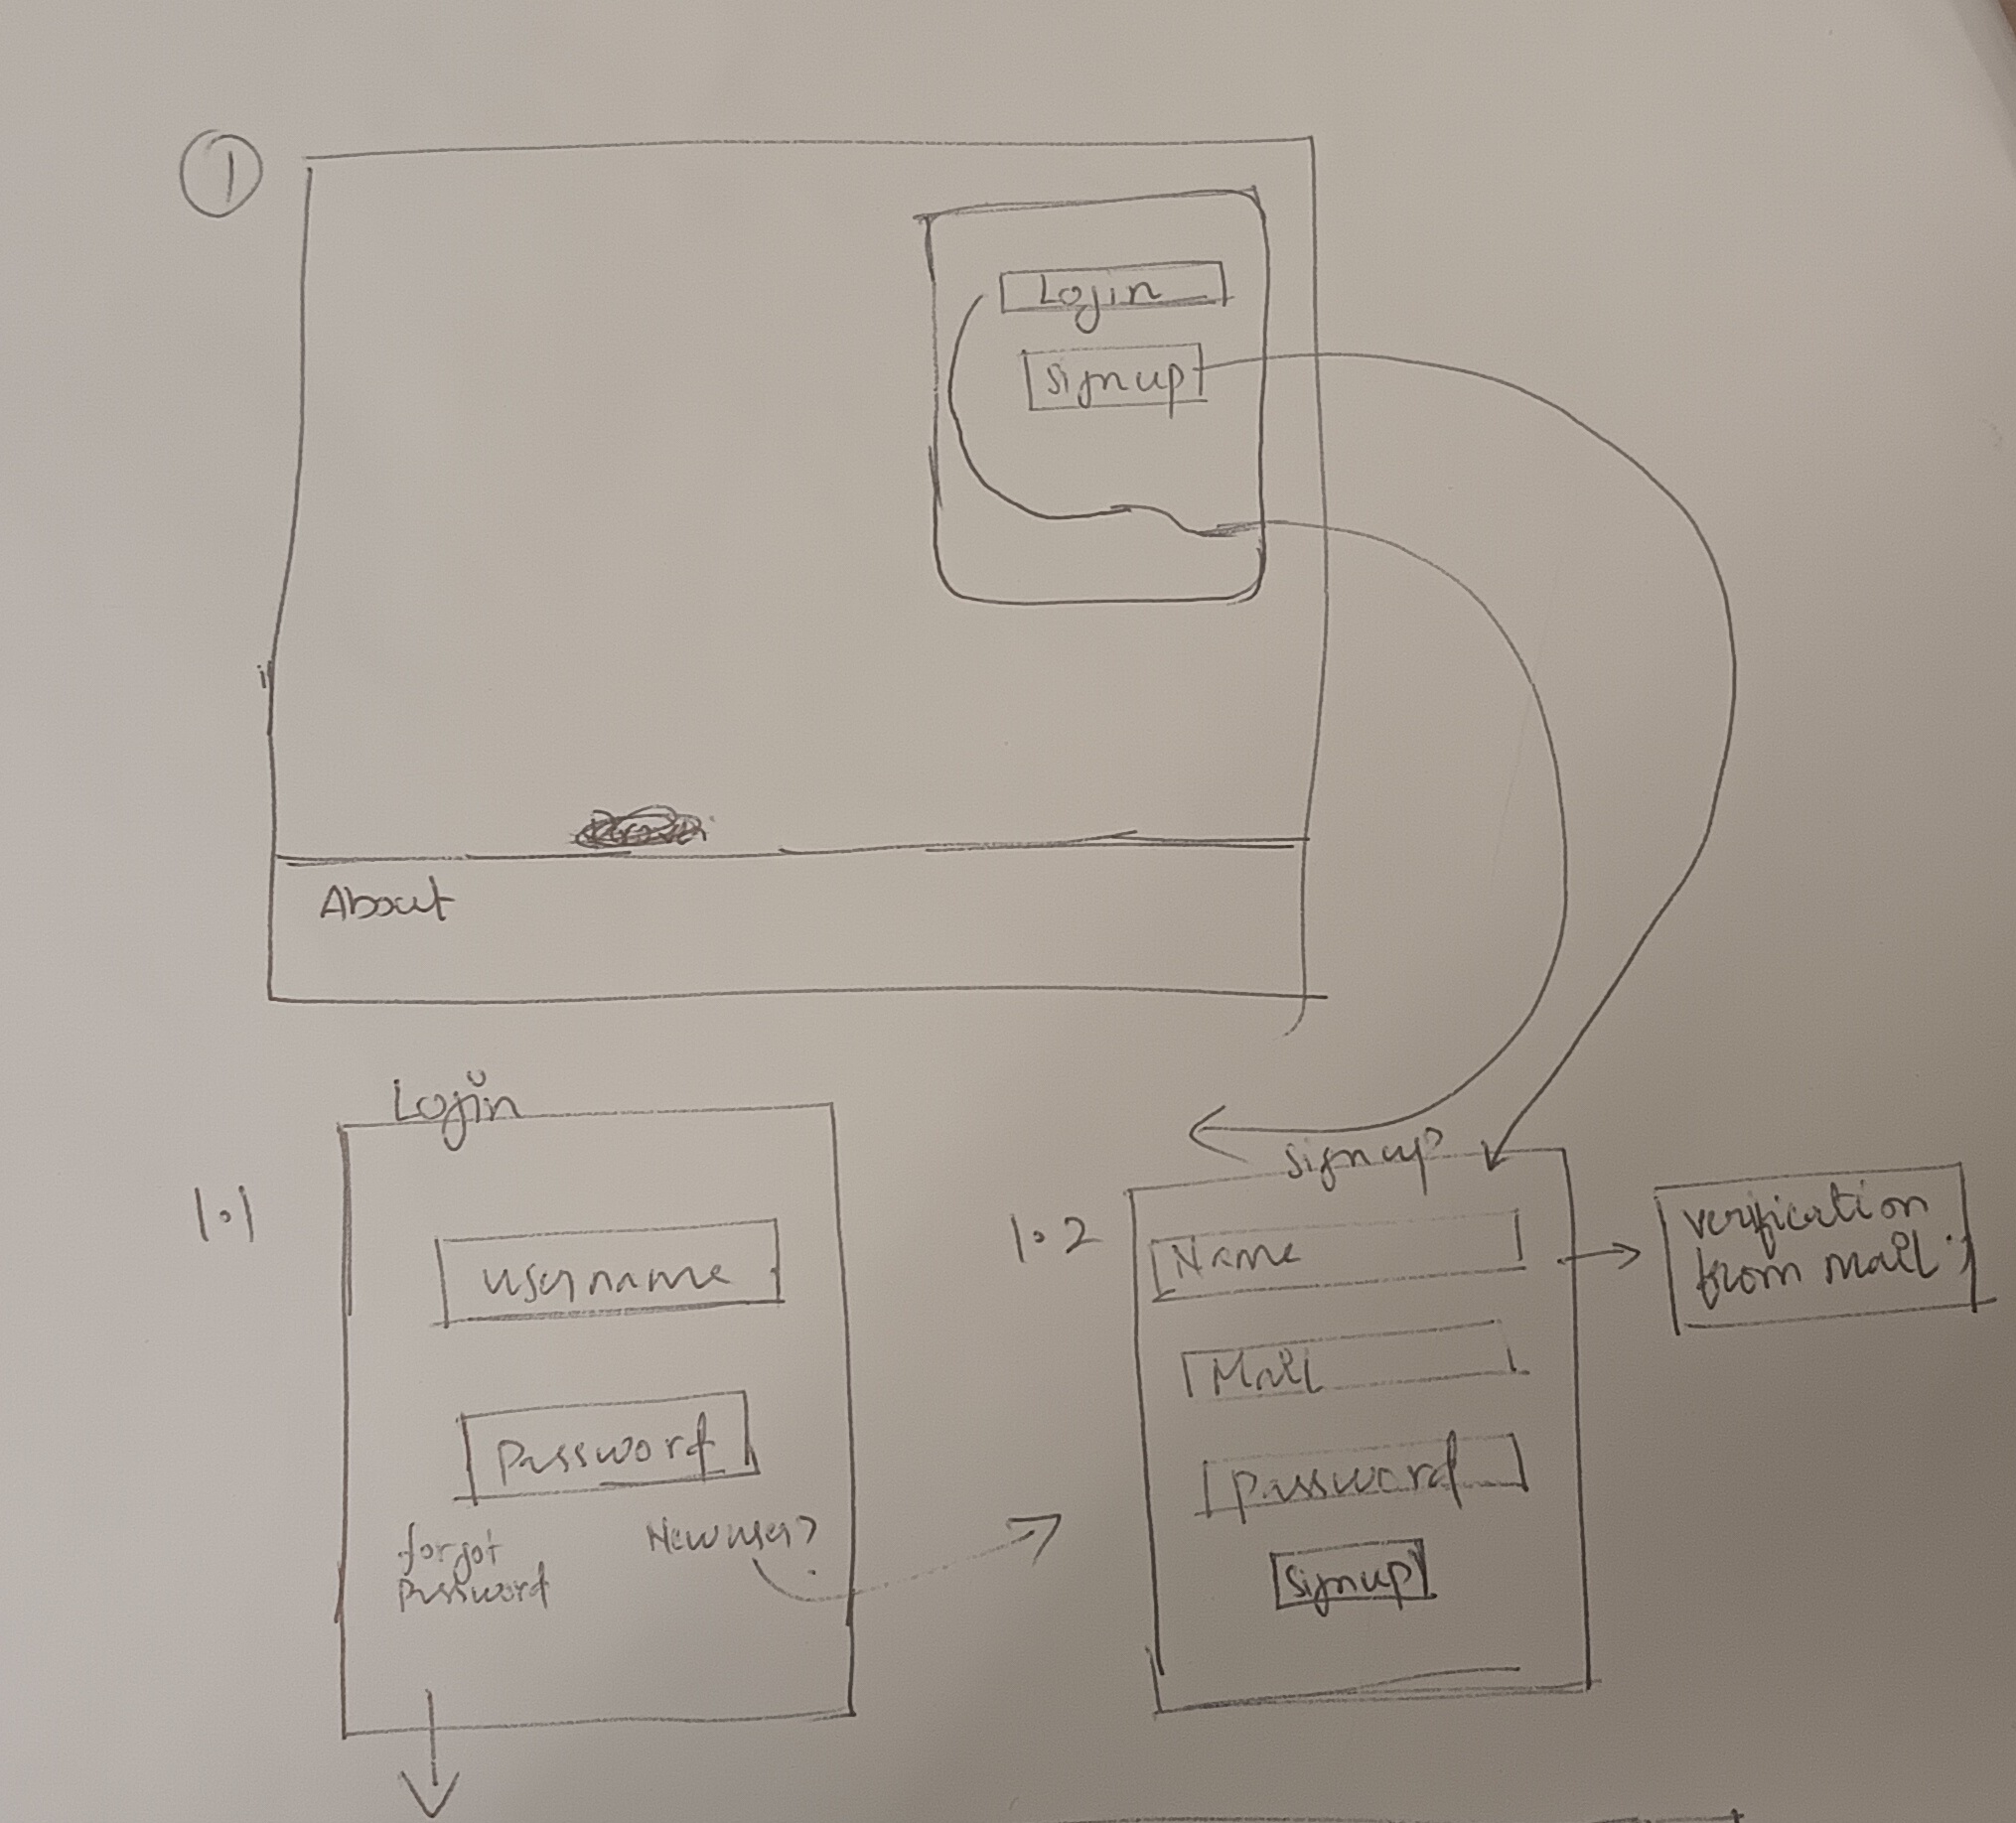 1
Login
signup
About
Login
1.1
username
Password
forgot
password
New user?
signup
1.2
Name
Mail
password
signup
verification
from mail.